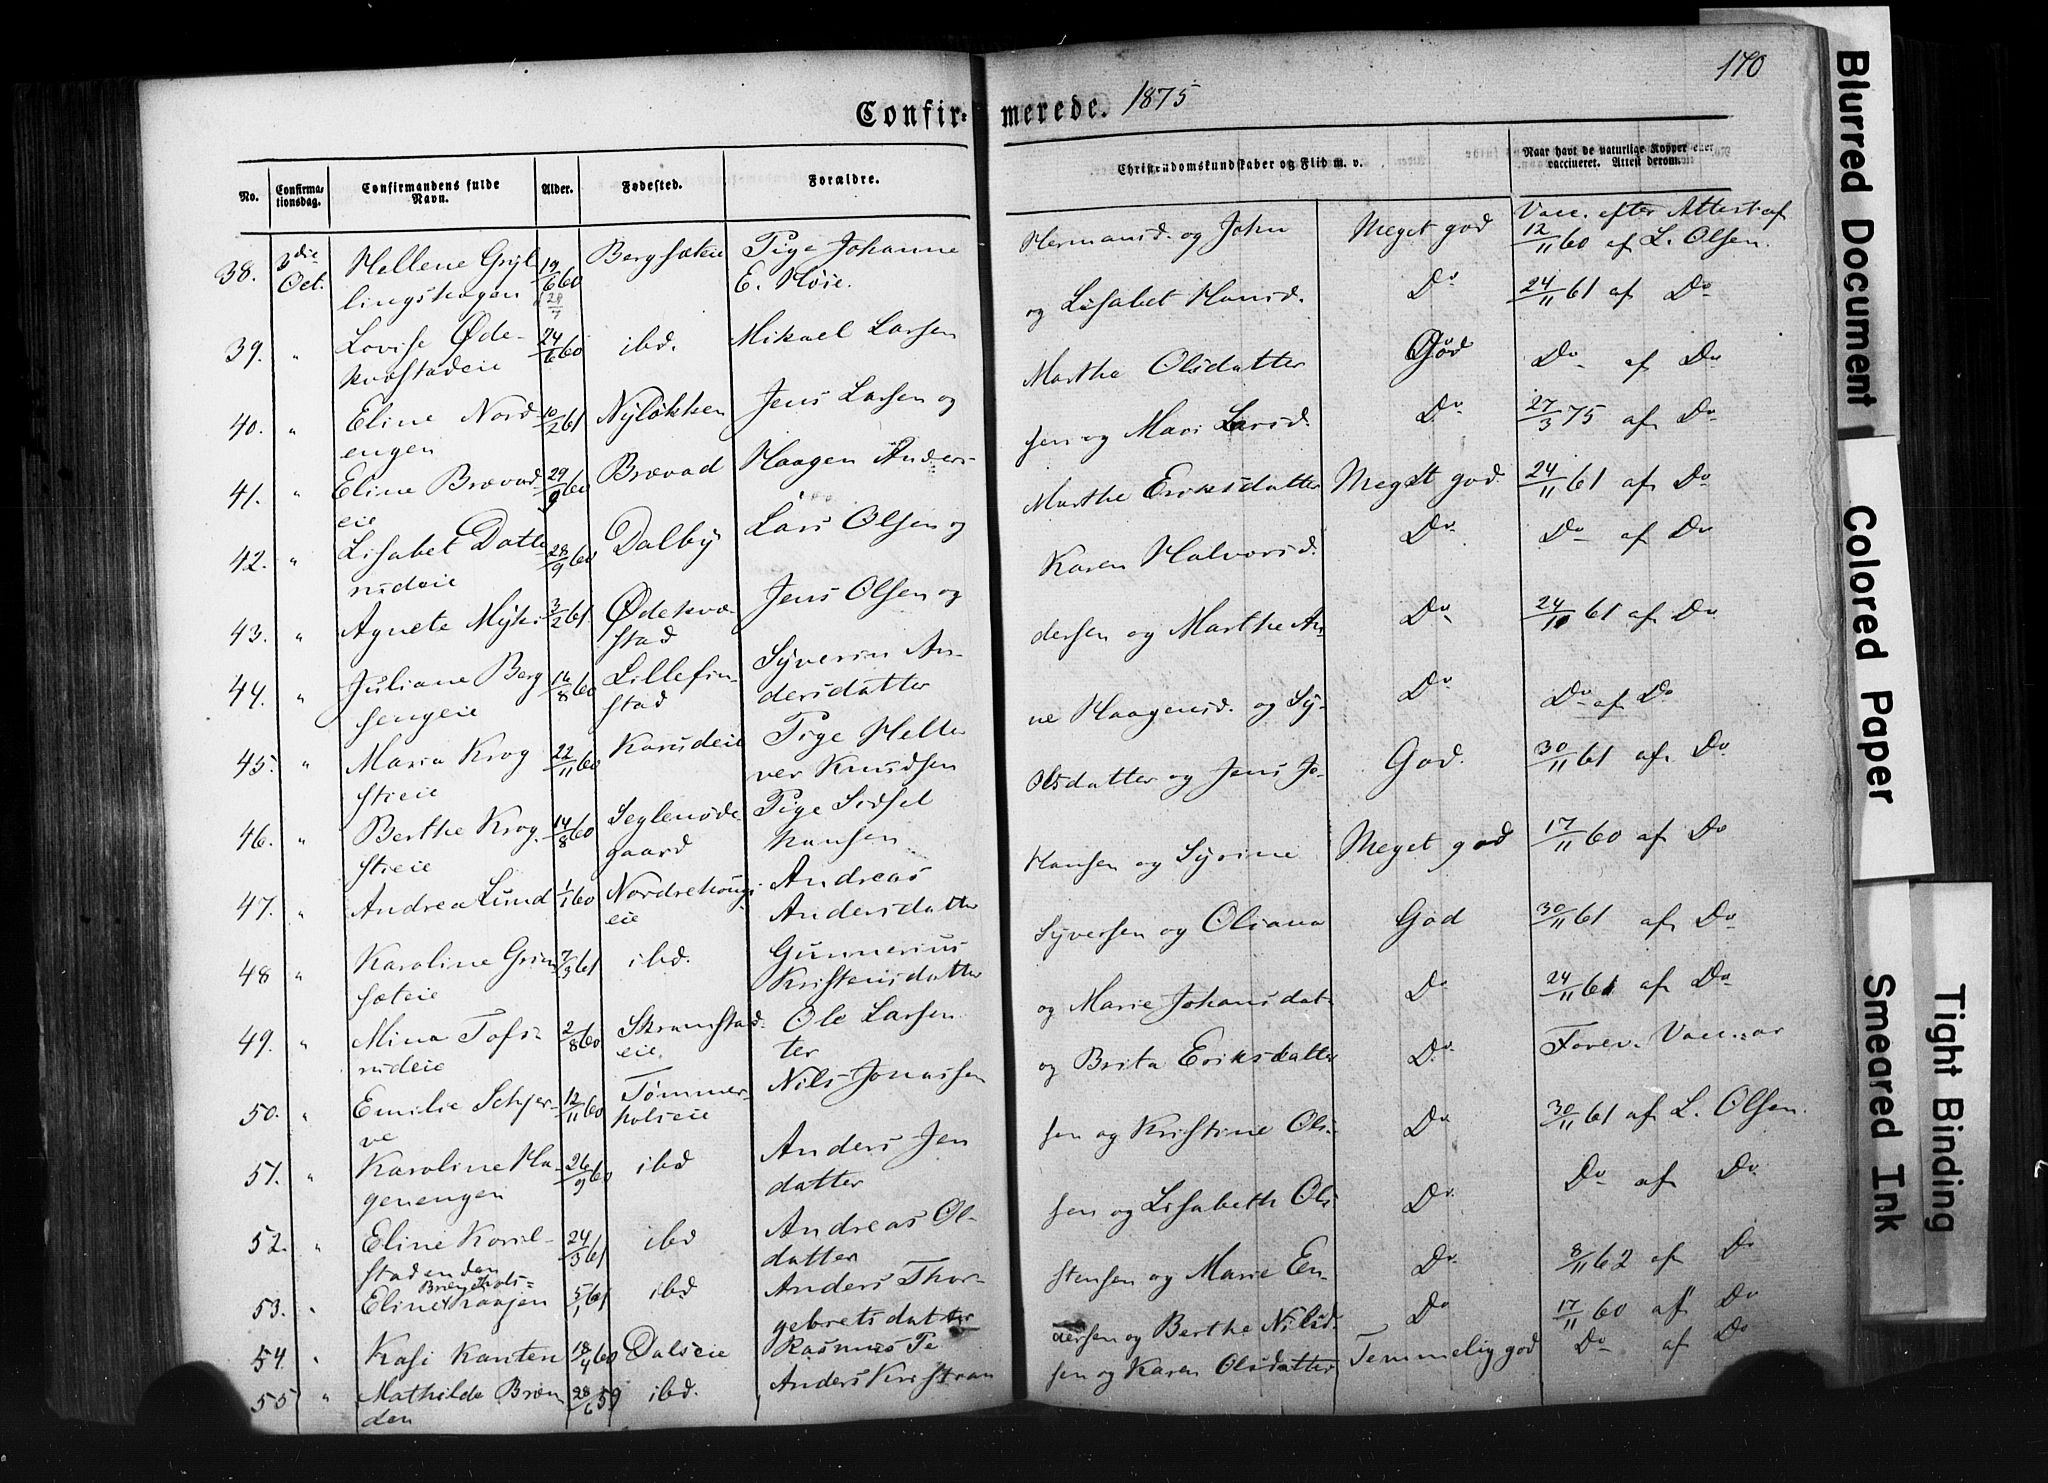 170
Confirmerede. 1875
No.
Confirma-
tionsdag.
Confirmandens fulde
Navn.
Alder.
Fødested.
Forældre.
Christendomskundskaber og Flid m. v.
Naar havt de naturlige Kopper eller
vaccineret. Attest derom.
38. 3die Oct. Hellene Gryl
lingshagen 19/6 60 Bergsæteie Pige Johanne
E. Høie. Hermansd. og John Meget god Vacc. efter Attest af
12/11 60 af L. Olsen.
39. " Lovise Øde-
kvæstadeie 24/6 60 ibd. Mikael Larsen og Lisabet Hansd. Do 24/11 61 af Do
40. " Eline Nord
engen 10/2 61 Nyløkken Jens Larsen og Marthe Olsdatter God Do af Do
41. " Eline Brævad
eie 29/9 60 Brævad Haagen Anders
sen og Mari Larsd. Do 27/3 75 af Do
42. " Lisabet Datte
rudeie 28/9 60 Dalby Lars Olsen og Marthe Eriksdatter Meget god 24/11 61 af Do
43. " Agnete Myhr 3/2 61 Ødekvæ-
stad Jens Olsen og Karen Halvorsd. Do Do af Do
44. " Juliane Berg
sengeie 16/8 60 Lillefin-
stad Syverin An-
dersen og Marthe An
dersdatter Do 24/10 61 af Do
45. " Maria Krog
stieie 22/11 60 Karudeie Pige Helle
ne Haagensd. og Sy-
ver Knudsen Do Do af Do
46. " Berthe Krog-
stieie 14/8 60 Seglenøde
gaard Pige Sidsel
Olsdatter og Jens Jo-
hansen God. 30/11 61 af Do
47. " Andrea Lund 1/1 60 Nordrehougs
eie Andreas
Hansen og Syrine
Andersdatter Meget god 17/11 60 af Do
48 " Karoline Grim
sæteie 7/3 61 ibd. Gunnerius
Syversen og Oliana
Kristensdatter God 30/11 61 af Do
49. " Mina Tofs-
rudeie 2/8 60 Skramstad
eie. Ole Larsen
og Marie Johansdat-
ter Do 24/11 61 af Do
50. " Emilie Schjer-
ve 12/11 60 Tømmer-
holseie Nils Jonassen
og Brita Eriksdatter Do Forev. Vacc.ar
51. " Karoline Ha-
genengen 26/9 60 ibd Anders Jen
sen og Kristine Ols-
datter Do 30/11 61 af L. Olsen.
52. " Eline Korsl-
stadenden 24/3 61 ibd Andreas Ol-
sen og Lisabeth Ols
datter Do Do af Do
53. " Eline Haagen 5/1 61 ibd Anders Thor-
stensen og Marie En-
gebretsdatter Do 8/11 62 af Do
54. " Kasi Kanten 18/4 60 Dalseie Rasmus Pe
dersen og Berthe Nilsd. Do 17/11 60 af Do
55 " Mathilde Bræn
den 28/6 59 ibd. Anders Kristian
sen og Karen Olsdatter Temmelig god Do af Do
Blurred Document
Colored Paper
Smeared Ink
Tight Binding